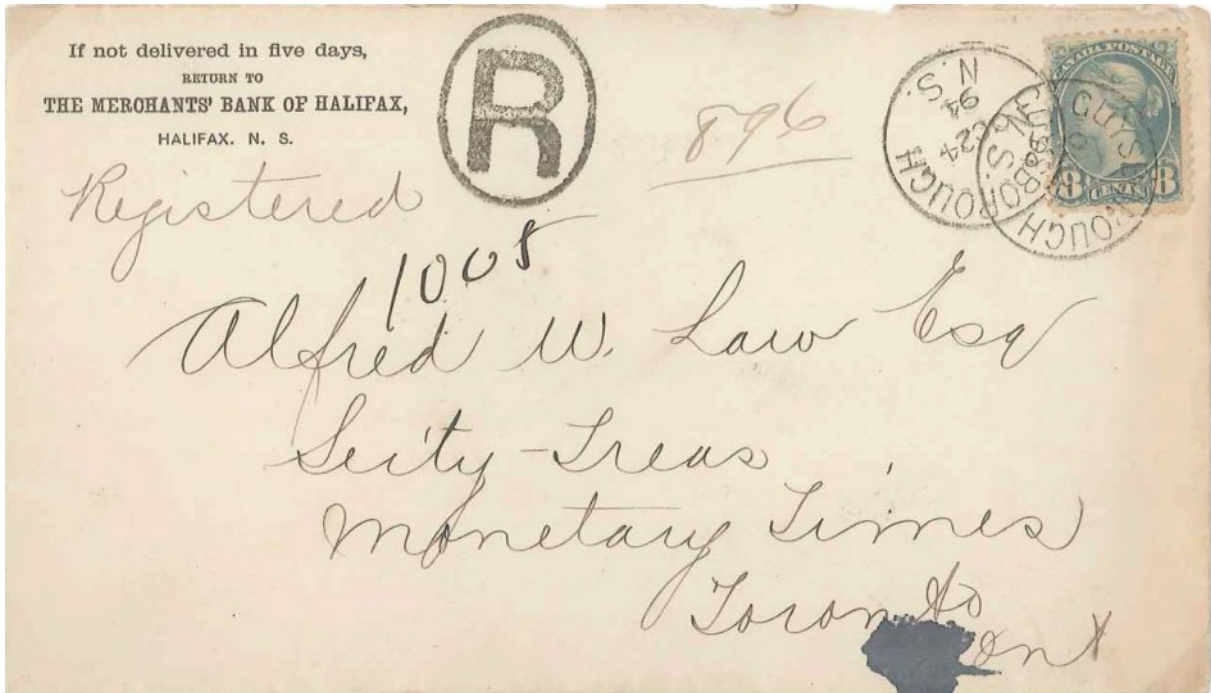 If not delivered in five days,
RETURN TO
THE MERCHANTS' BANK OF HALIFAX,
HALIFAX. N. S.
R
896
CANADA POSTAGE
8 CENTS 8
GUYSBOROUGH
N.S.
24
94
GUYSBOROUGH
N.S.
Registered
1005
Alfred W. Law Esq
Sec'ty - Treas
Monetary Times
Toronto
Ont